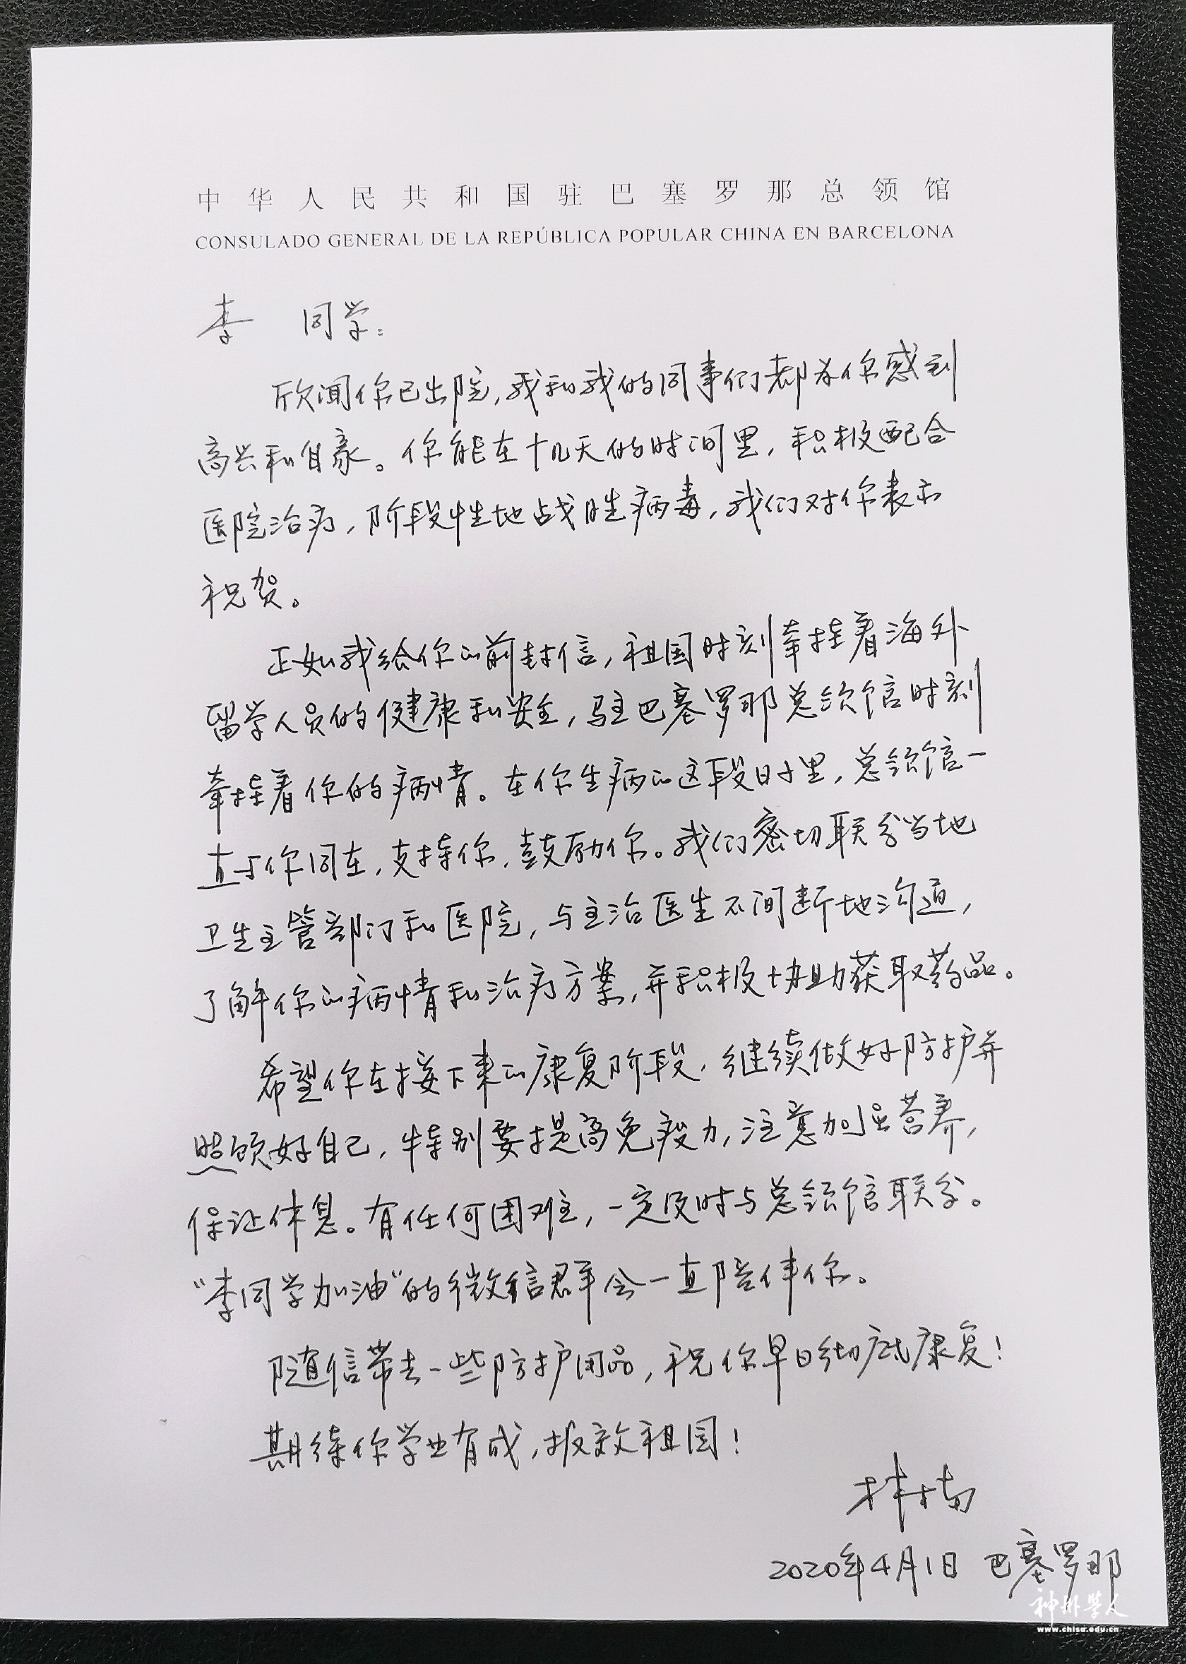 中华人民共和国驻巴塞罗那总领馆
CONSULADO GENERAL DE LA REPÚBLICA POPULAR CHINA EN BARCELONA
李 同学：
欣闻你已出院，我和我的同事们都为你感到
高兴和自豪。你能在十几天的时间里，积极配合
医院治疗，阶段性地战胜病毒，我们对你表示
祝贺。
正如我给你的前封信，祖国时刻牵挂着海外
留学人员的健康和安全，驻巴塞罗那总领馆时刻
牵挂着你的病情。在你生病的这段日子里，总领馆一
直与你同在，支持你，鼓励你。我们密切联系当地
卫生主管部门和医院，与主治医生不间断地沟通，
了解你的病情和治疗方案，并积极协助获取药品。
希望你在接下来的康复阶段，继续做好防护并
照顾好自己，特别要提高免疫力，注意加强营养，
保证休息。有任何困难，一定及时与总领馆联系。
“李同学加油”的微信群会一直陪伴你。
随信带去一些防护用品，祝你早日彻底康复！
期待你学业有成，报效祖国！
林楠
2020年4月1日 巴塞罗那
神州学人
www.chisa.edu.cn